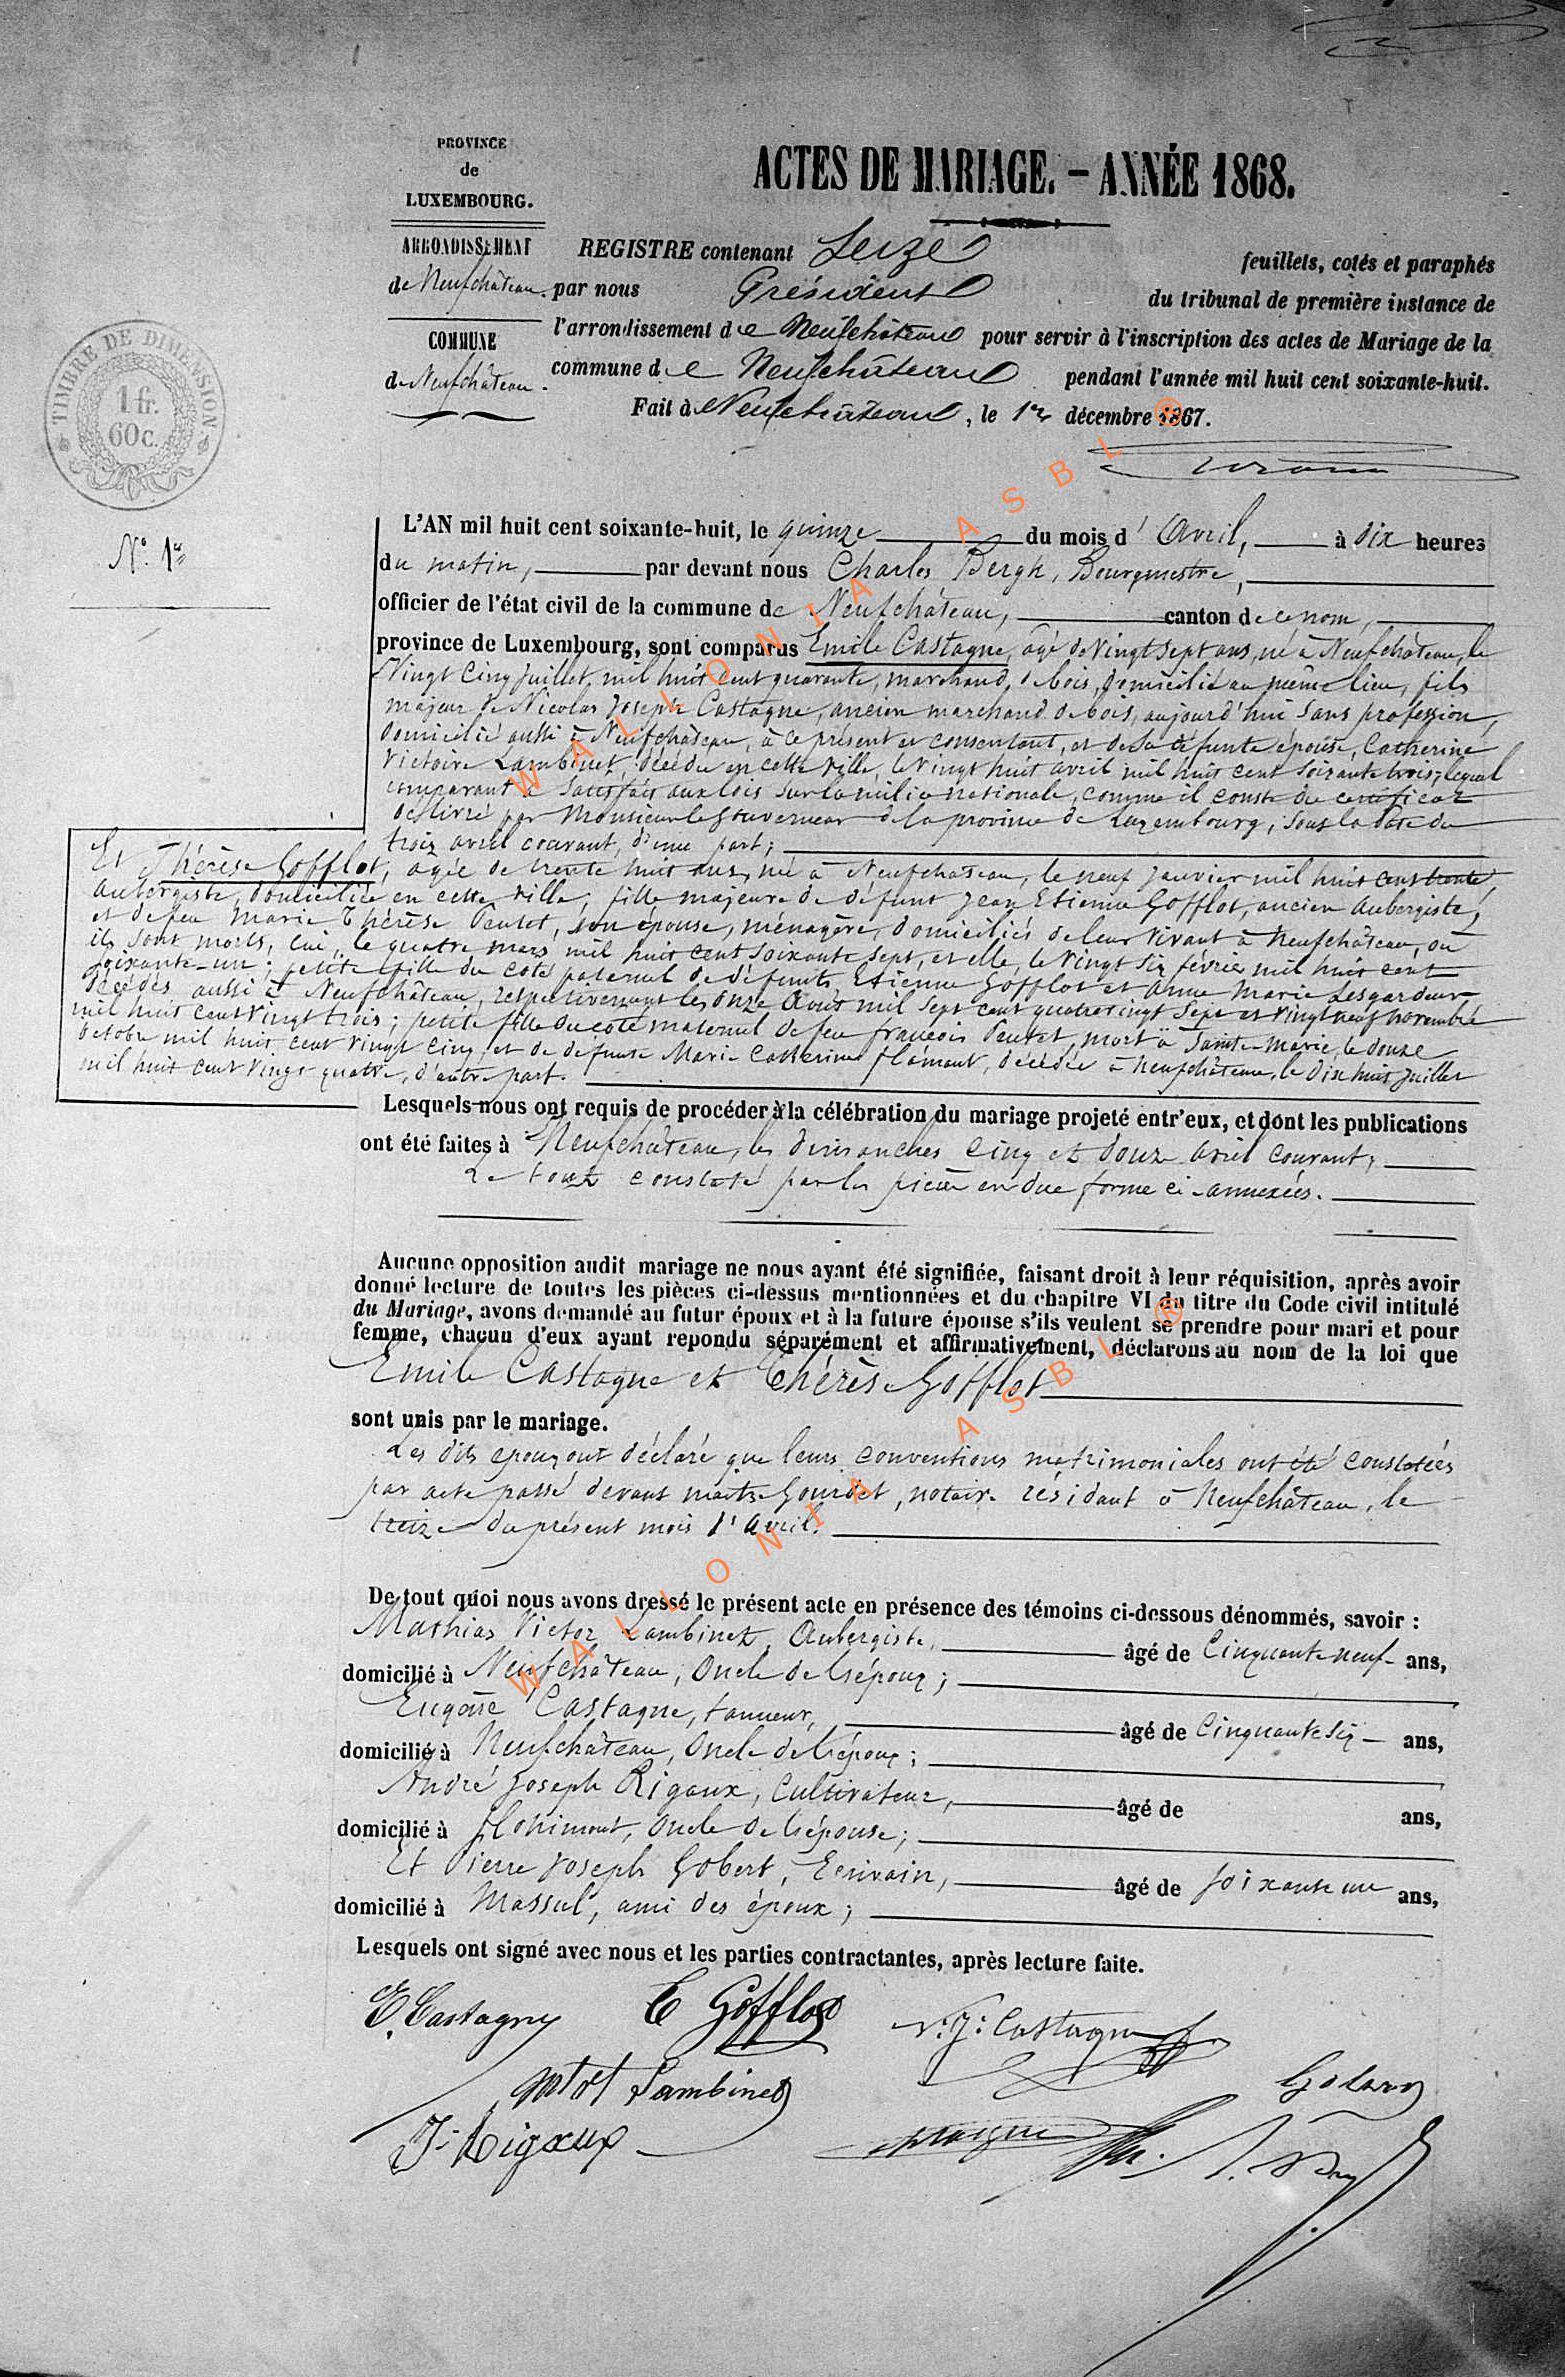 PROVINCE
de
LUXEMBOURG.
ARRONDISSEMENT
de Neufchâteau.
COMMUNE
de Neufchâteau.
TIMBRE DE DIMENSION
1 fr.
60 c.
ACTES DE MARIAGE. – ANNÉE 1868.
REGISTRE contenant Seize feuillets, cotés et paraphés
par nous Président du tribunal de première instance de
l'arrondissement de Neufchâteau pour servir à l'inscription des actes de Mariage de la
commune de Neufchâteau pendant l'année mil huit cent soixante-huit.
Fait à Neufchâteau, le 1er décembre 1867.
N° 1er
L'AN mil huit cent soixante-huit, le quinze du mois d'Avril, à dix heures
du matin, par devant nous Charles Bergh, Bourgmestre,
officier de l'état civil de la commune de Neufchâteau, canton de ce nom,
province de Luxembourg, sont comparus Emile Castagne, âgé de Vingt sept ans, né à Neufchâteau, le
Vingt Cinq juillet mil huit cent quarante, marchand de bois, domicilié au même lieu, fils
majeur de Nicolas Joseph Castagne, ancien marchand de bois, aujourd'hui sans profession,
domicilié aussi à Neufchâteau, à ce présent et consentant, et de sa défunte épouse, Catherine
Victoire Lambinet, décédée en cette ville, le vingt huit avril mil huit cent soixante trois; lequel
comparant a satisfait aux lois sur la milice nationale, comme il conste du certificat
délivré par Monsieur le Gouverneur de la province de Luxembourg, sous la date du
trois avril courant, d'une part;
Et Thérèse Gofflot, agée de trente huit ans, née à Neufchâteau, le neuf Janvier mil huit cent trente,
Aubergiste, domiciliée en cette ville, fille majeure de défunt Jean Etienne Gofflot, ancien Aubergiste,
et de feu Marie Thérèse Pentet, son épouse, ménagère, domiciliés de leur vivant à Neufchâteau, où
ils sont morts, lui, le quatre mars mil huit cent soixante sept, et elle, le vingt six février mil huit cent
soixante-un; petite fille du coté paternel de défunts Etienne Gofflot et Anne Marie Lesgardeur
décédés aussi à Neufchâteau, respectivement les onze Août mil sept cent quatre vingt sept et vingt neuf novembre
mil huit cent vingt trois; petite fille du coté maternel de feu françois Pentet, mort à Sainte-Marie, le douze
Octobre mil huit cent vingt cinq, et de défunte Marie Catherine flamant, décédée à Neufchâteau, le dix huit juillet
mil huit cent vingt quatre, d'autre part.
Lesquels nous ont requis de procéder à la célébration du mariage projeté entr'eux, et dont les publications
ont été faites à Neufchâteau, les dimanches cinq et douze avril courant;
Le tout constaté par les pièces en due forme ci-annexées.
Aucune opposition audit mariage ne nous ayant été signifiée, faisant droit à leur réquisition, après avoir
donné lecture de toutes les pièces ci-dessus mentionnées et du chapitre VI du titre du Code civil intitulé
du Mariage, avons demandé au futur époux et à la future épouse s'ils veulent se prendre pour mari et pour
femme, chacun d'eux ayant repondu séparément et affirmativement, déclarons au nom de la loi que
Emile Castagne et Thérèse Gofflot
sont unis par le mariage.
Les dits époux ont déclaré que leurs conventions matrimoniales ont été constatées
par acte passé devant maître Gourdet, notaire résidant à Neufchâteau, le
treize du présent mois d'avril.
De tout quoi nous avons dressé le présent acte en présence des témoins ci-dessous dénommés, savoir :
Mathias Victor Lambinet, Aubergiste, âgé de Cinquante neuf ans,
domicilié à Neufchâteau, Oncle de l'époux;
Eugène Castagne, tanneur, âgé de Cinquante six ans,
domicilié à Neufchâteau, Oncle de l'époux;
André Joseph Rigaux, Cultivateur, âgé de ans,
domicilié à flohimont, Oncle de l'épouse;
Et Pierre Joseph Gobert, Ecrivain, âgé de soixante un ans,
domicilié à Massul, ami des époux;
Lesquels ont signé avec nous et les parties contractantes, après lecture faite.
E. Castagne T Gofflot N. J. Castagne
Lambinet
J. Rigaux
WALLONIA ASBL ®
WALLONIA ASBL ®